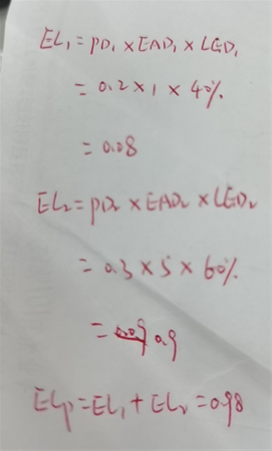 EL₁=PD₁×EAD₁×LED₁
=0.2×1×40%
=0.08
EL₂=PD₂×EAD₂×LED₂
=0.3×5×60%
=0.9
ELp=EL₁+EL₂=0.98